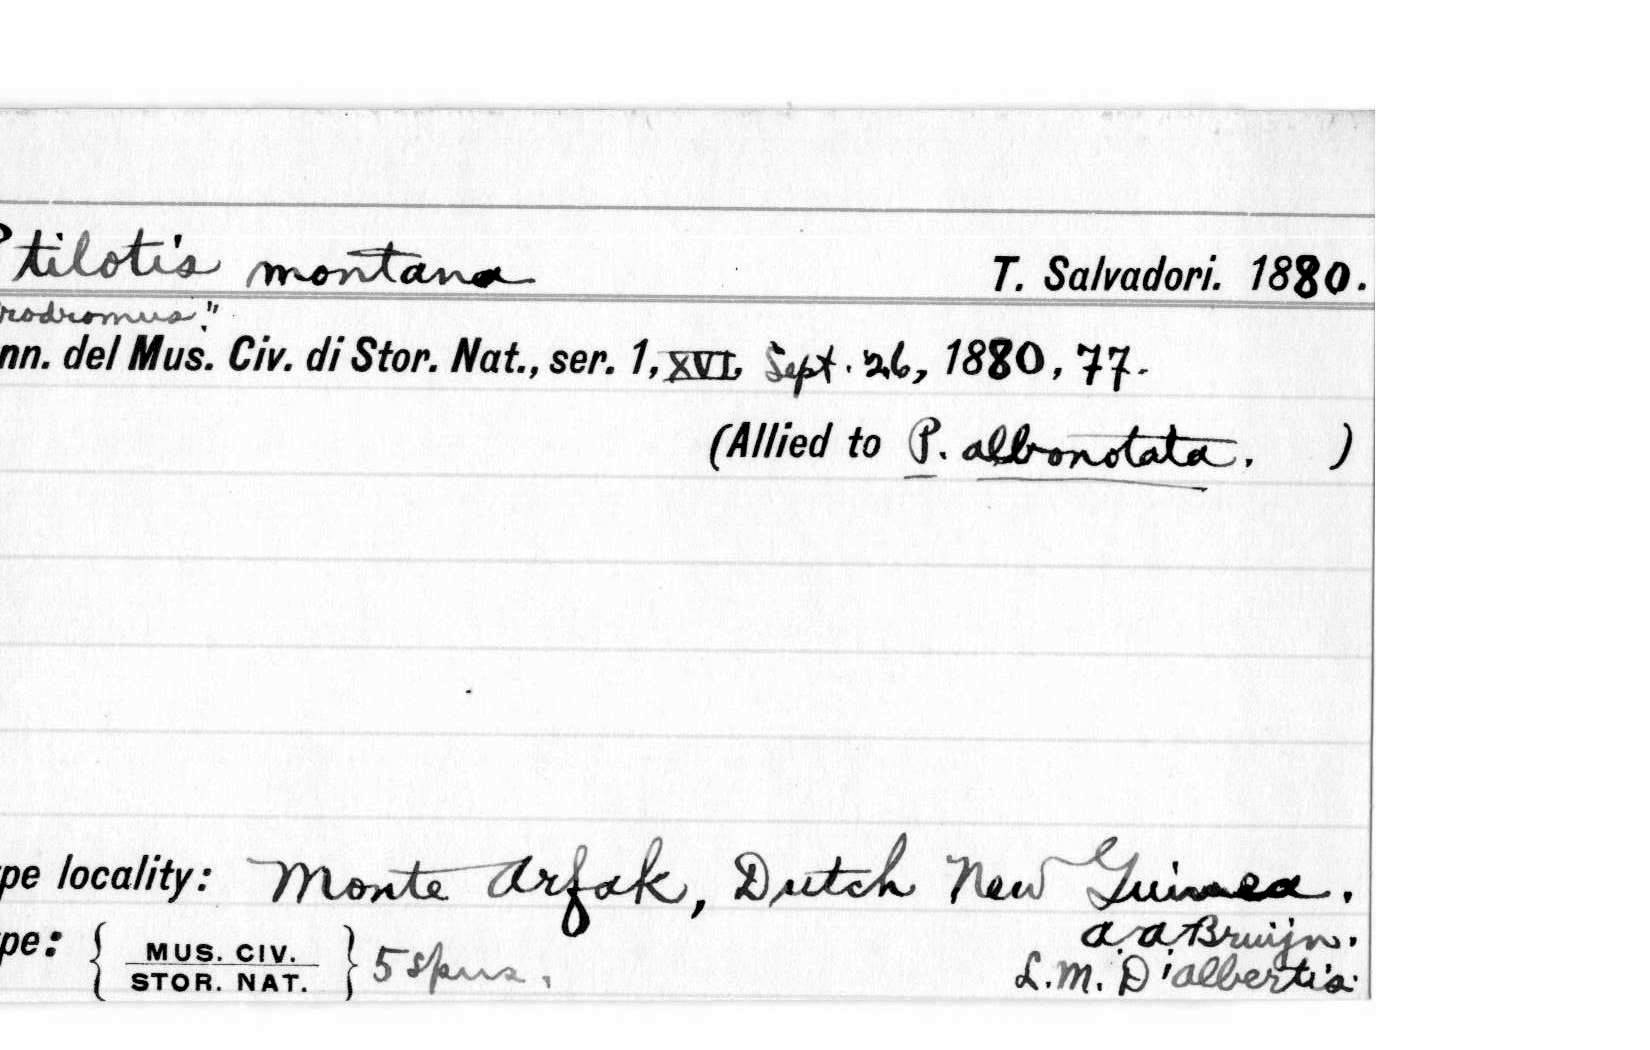 Ptilotis montana T. Salvadori. 1880.
rodromus."
nn. del Mus. Civ. di Stor. Nat., ser. 1, XVI, Sept. 26, 1880, 77.
(Allied to P. albonotata. )
pe locality: Monte Arfak, Dutch New Guinea.
A. A. Bruijn.
pe: { MUS. CIV. } 5 spms. L. M. D'Albertis.
STOR. NAT.